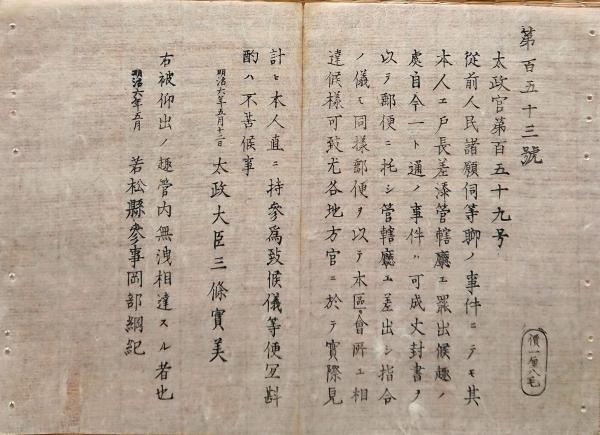 第百五十三號
太政官第百五十九号
從前人民諸願伺等聊ノ事件ニテモ其
本人エ戸長差添管轄廳エ罷出候趣ノ
處自今一ト通ノ事件ハ可成丈封書ヲ
以テ郵便ニ托シ管轄廳エ差出シ指令
ノ儀モ同樣郵便ヲ以テ本區會所エ相
達候樣可致尤各地方官ニ於テ實際見
計ヒ本人直ニ持參爲致候儀等便宜斟
酌ハ不苦候事
明治六年五月十二日 太政大臣三條實美
右被仰出ノ趣管内無洩相達スル者也
明治六年五月 若松縣參事岡部綱紀
價一厘八毛